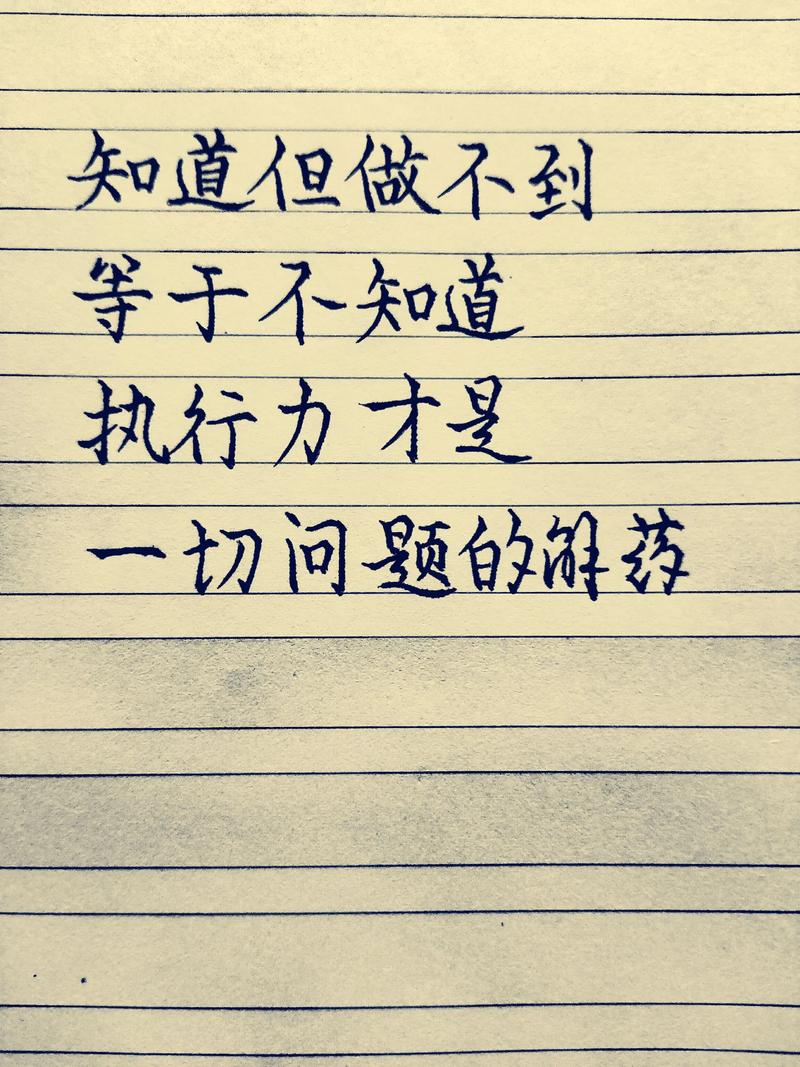 知道但做不到
等于不知道
执行力才是
一切问题的解药